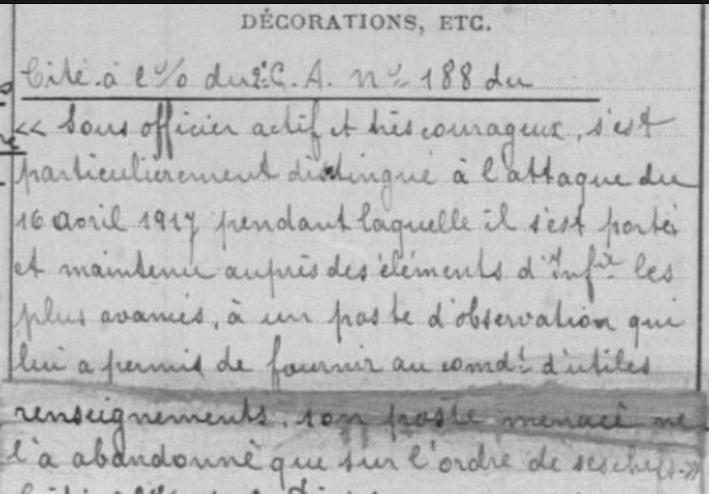 DÉCORATIONS, ETC.
Cité à l'o/o du 2e C. A. No 188 du
« Sous officier actif et très courageux, s'est
particulièrement distingué à l'attaque du
16 avril 1917 pendant laquelle il s'est porté
et maintenu auprès des éléments d'Infie les
plus avancés, à un poste d'observation qui
lui a permis de fournir au comdt d'utiles
renseignements. son poste menacé ne
l'a abandonné que sur l'ordre de ses chefs. »